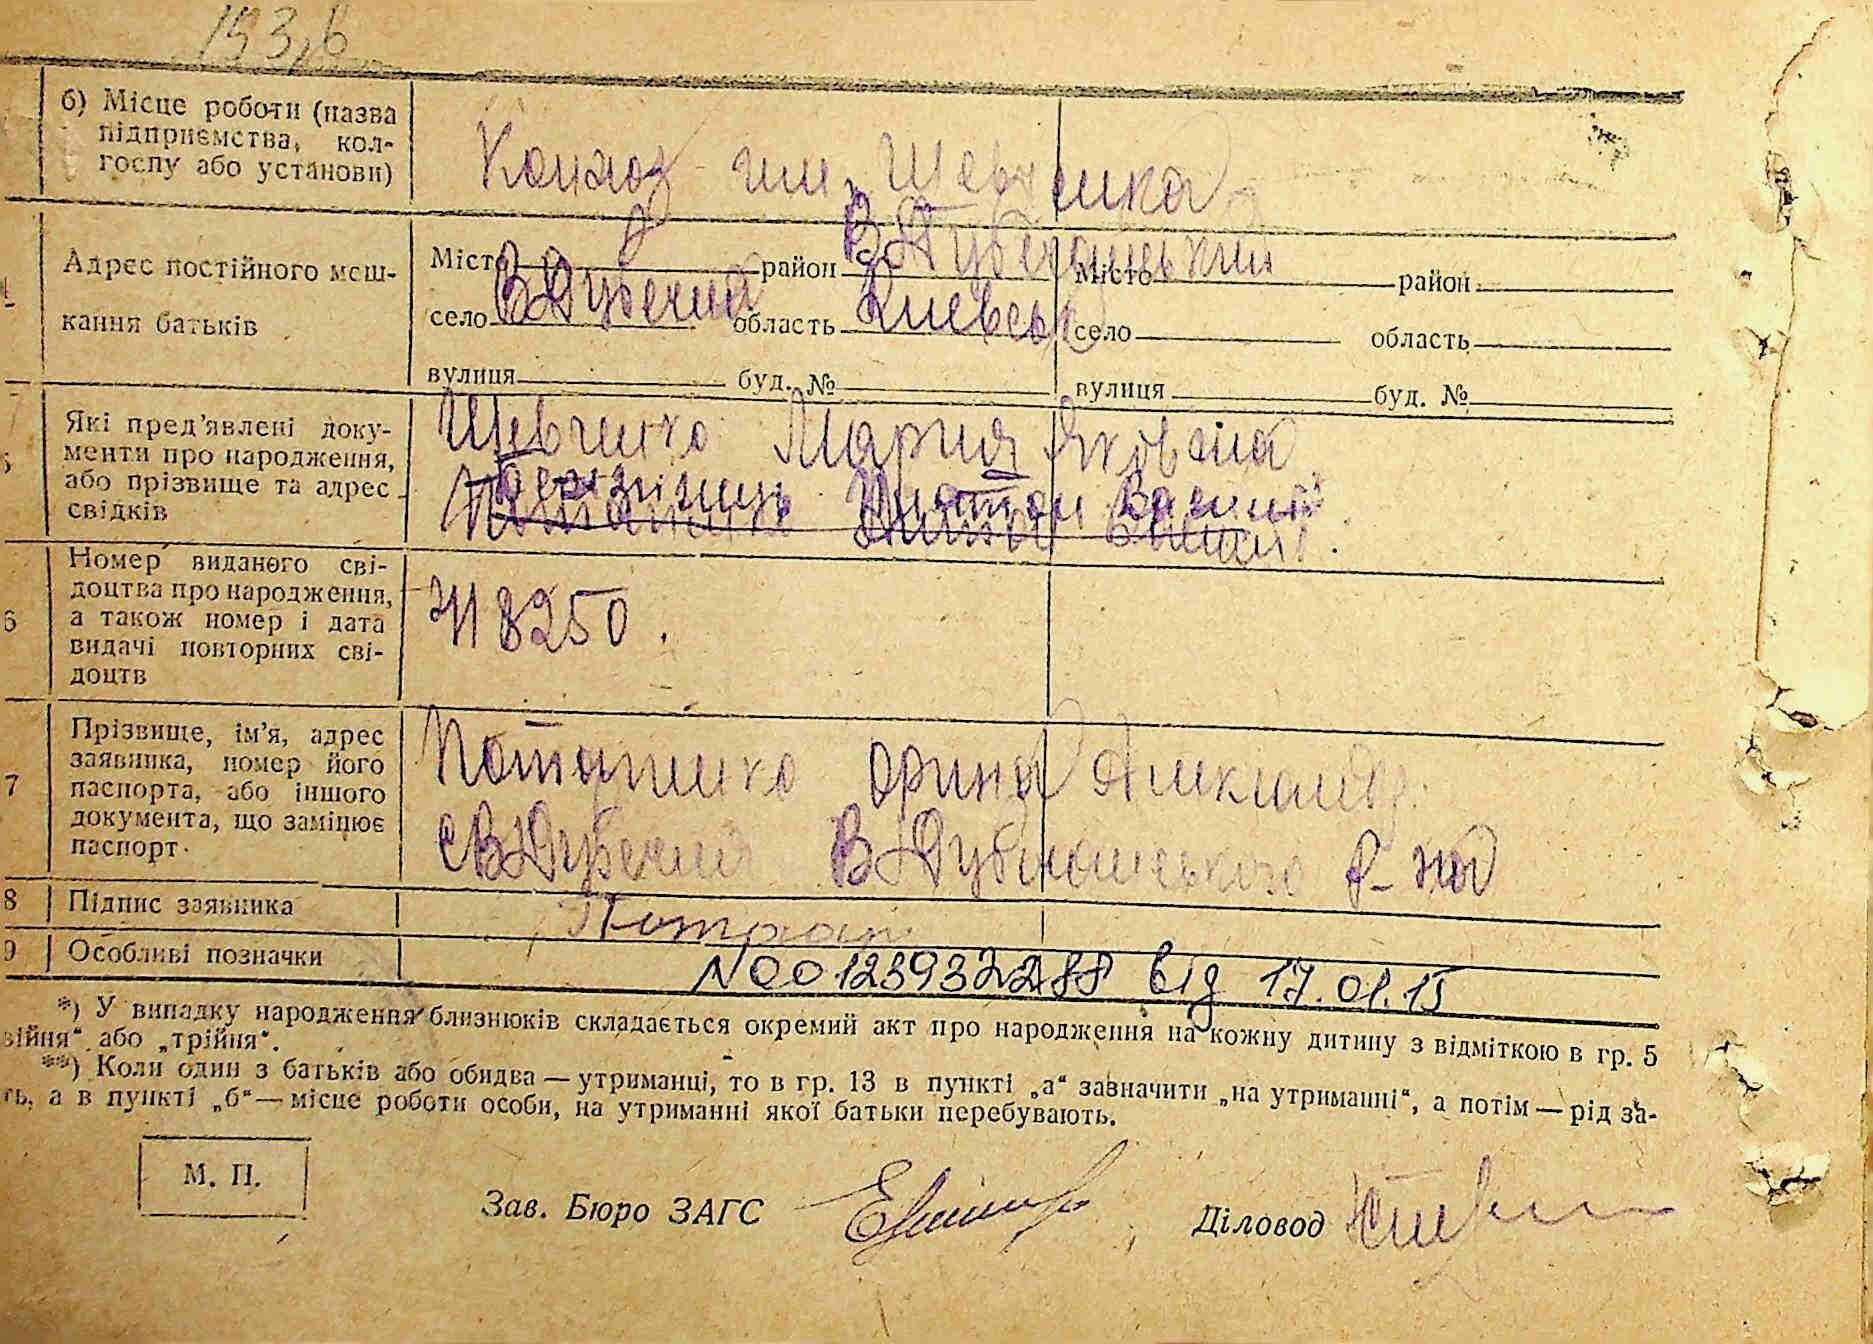 193,6
б) Місце роботи (назва
підприємства, кол-
госпу або установи)
Колхоз им. Шевченка
Адрес постійного меш-
кання батьків
Місто район В Дубечанський
село В Дубечня область Киевськ
вулиця буд. №
Місто район
село область
вулиця буд. №
5
Які пред'явлені доку-
менти про народження,
або прізвище та адрес
свідків
Шевченко Мария Яковлена
Платон Василий
6
Номер виданого сві-
доцтва про народження,
а також номер і дата
видачі повторних сві-
доцтв
418250.
7
Прізвище, ім'я, адрес
заявника, номер його
паспорта, або іншого
документа, що заміцює
паспорт
Потапенко Орина Александр.
с В Дубечня В Дубечанського р-на
8 Підпис заявника
9 Особливі позначки
N 00123932288 від 17.01.15
*) У випадку народження близнюків складається окремий акт про народження на кожну дитину з відміткою в гр. 5
війня" або „трійня".
**) Коли один з батьків або обидва — утриманці, то в гр. 13 в пункті „а" зазначити „на утриманні", а потім — рід за-
ть, а в пункті „б" — місце роботи особи, на утриманні якої батьки перебувають.
М. П.
Зав. Бюро ЗАГС
Діловод